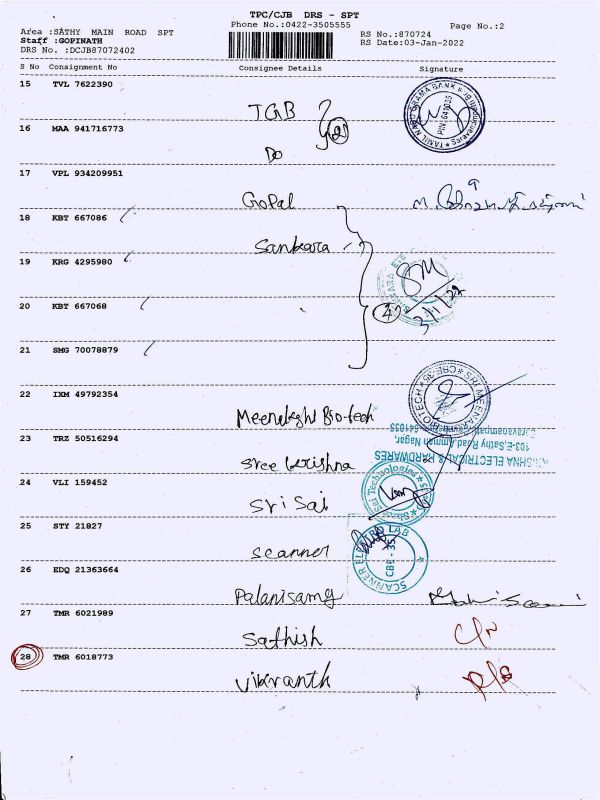 TPC/CJB DRS - SPT
Phone No.:0422-3505555
Page No.:2
Area :SATHY MAIN ROAD SPT
Staff :GOPINATH
DRS No. :DCJB87072402
RS No.:870724
RS Date:03-Jan-2022
S No Consignment No Consignee Details Signature
15 TVL 7622390
TGB
16 MAA 941716773
Do
2
17 VPL 934209951
Gopal
18 KBT 667086
Sankara
19 KRG 4295980
SM
3/1/22
20 KBT 667068
4
21 SMG 70078879
22 IXM 49792354
Meenakshi Bio-tech
23 TRZ 50516294
Sree Krishna
103-E, Sathy Road,
ELECTRICAL & HARDWARES
24 VLI 159452
Sri Sai
Sri Sai Technologies
25 STY 21827
Scanner
SCANNER ELECTRO LAB
CBE - 35
26 EDQ 21363664
Palanisamy
27 TMR 6021989
Sathish
28 TMR 6018773
Vikranth